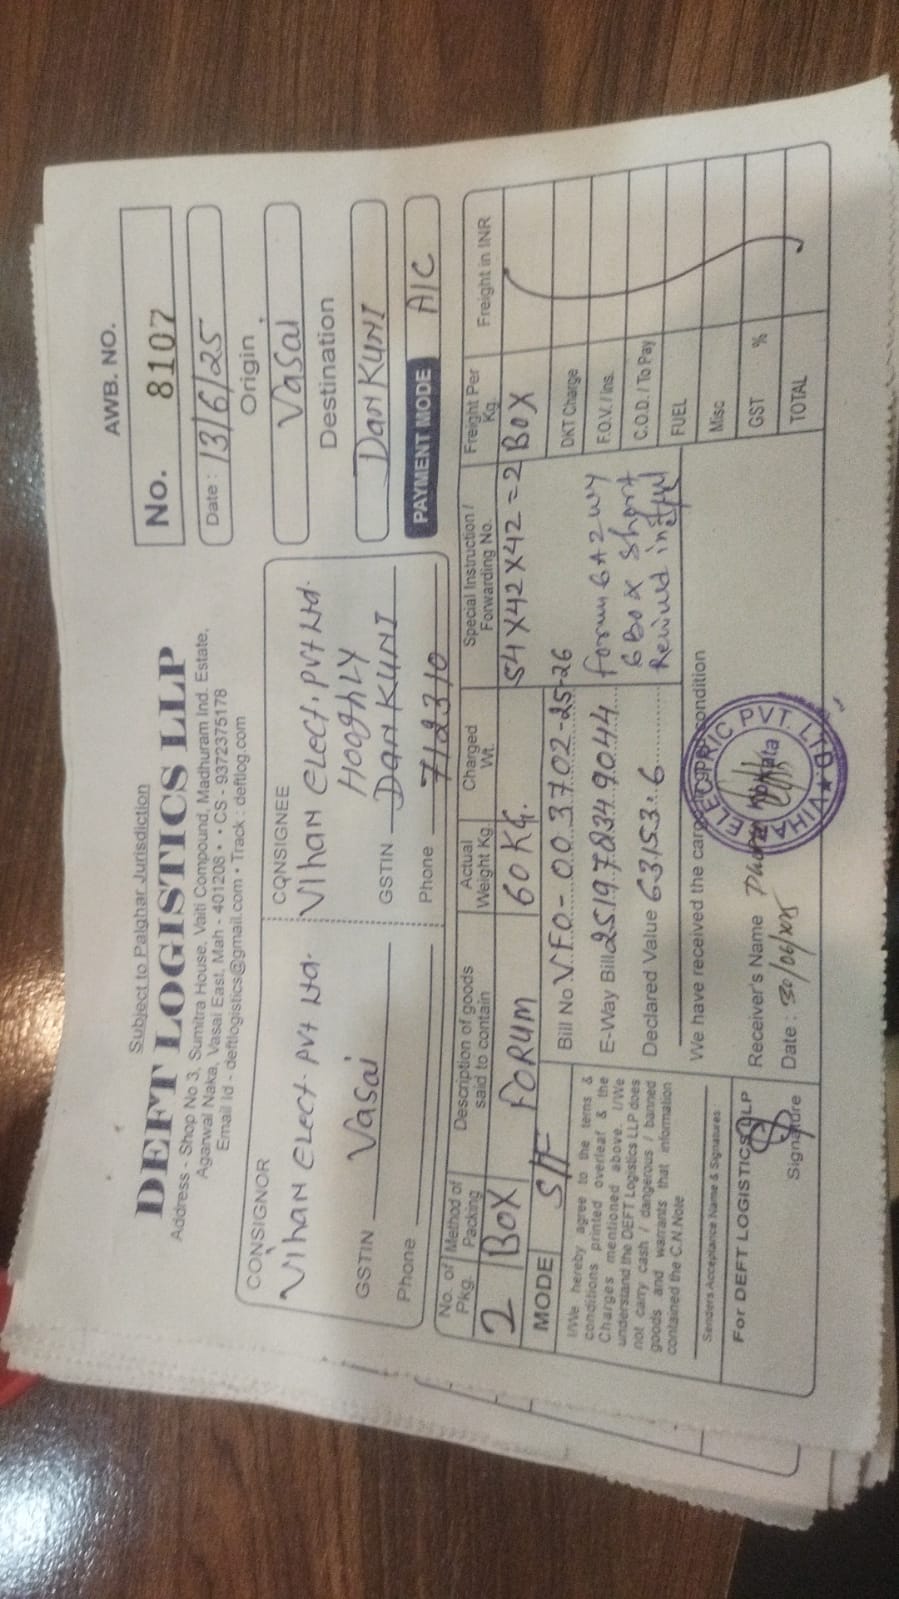 Subject to Palghar Jurisdiction
DEFT LOGISTICS LLP
Address - Shop No 3, Sumitra House, Vaiti Compound, Madhuram Ind. Estate,
Agarwal Naka, Vasai East, Mah - 401208 • • CS - 9372375178
Email Id - deftlogistics@gmail.com • Track : deftlog.com
AWB. NO.
No. 8107
Date : 13/6/25
Origin
Vasai
Destination
DANKUNI
PAYMENT MODE A/C
CONSIGNOR
VIHAN ELECT. PVT Ltd.
GSTIN Vasai
Phone
CONSIGNEE
VIHAN ELECT. PVT Ltd.
HOOGHLY
GSTIN DANKUNI
Phone 712310
No. of Pkg. Method of Packing Description of goods said to contain Actual Weight Kg. Charged Wt. Special Instruction / Forwarding No. Freight Per Kg. Freight in INR
2 BOX FORUM 60 KG. 54X42X42=2 BOX
MODE S/F
Bill No VFO-003702-25-26
E-Way Bill
Declared Value 63153.6
6 Box Short
DKT Charge
F.O.V. / Ins.
C.O.D. / To Pay
FUEL
Misc
GST %
TOTAL
I/We hereby agree to the terms &
conditions printed overleaf & the
Charges mentioned above. I/We
understand the DEFT Logistics LLP does
not carry cash / dangerous / banned
goods and warrants that information
contained the C.N.Note
Senders Acceptance Name & Signatures :
For DEFT LOGISTICS LLP
Signature
We have received the condition
Receiver's Name
Date : 30/06/2025
VIHA ELECTRIC PVT. LTD. ★